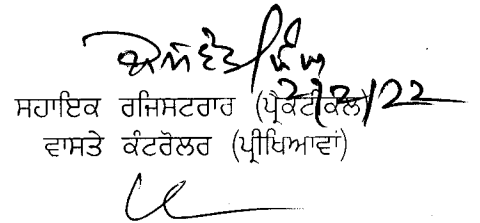 ਸਹਾਇਕ ਰਜਿਸਟਰਾਰ (ਪ੍ਰੈਕਟੀਕਲ) 2/2/22
ਵਾਸਤੇ ਕੰਟਰੋਲਰ (ਪ੍ਰੀਖਿਆਵਾਂ)